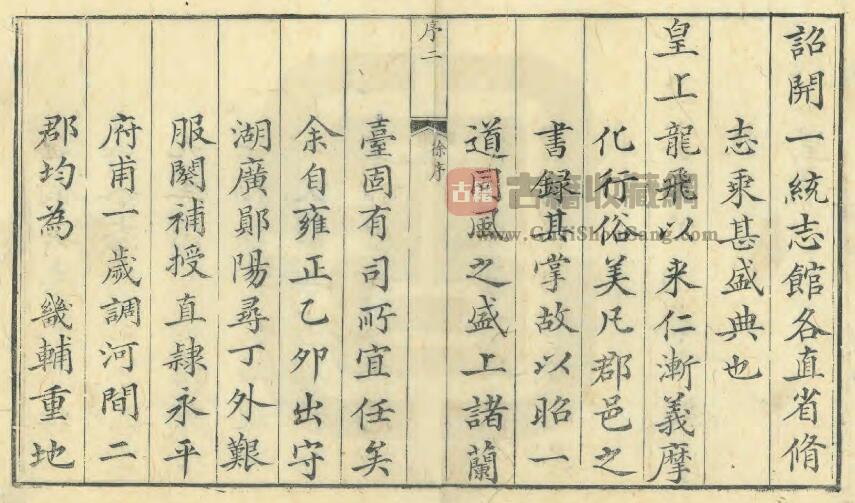 詔開一統志館各直省脩
志乘甚盛典也
皇上龍飛以来仁漸義摩
化行俗美凡郡邑之
書録其掌故以昭一
道同風之盛上諸蘭
序二
徐序
臺固有司所宜任矣
余自雍正乙夘出守
湖廣鄖陽尋丁外艱
服闋補授直隷永平
府甫一歲調河間二
郡均為 畿輔重地
古籍
古籍收藏網
www.GuJiShouCang.com